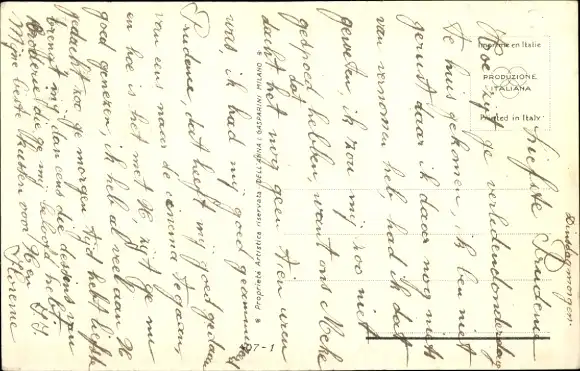 Dinsdagmorgen.
Liefste Prudence
Hoe zijt ge verleden donderdag
te huis gekomen, ik ben niet
gerust daar ik daar nog niets
van vernomen heb had ik dat
geweten ik zou mij zoo niet
gespoed hebben, want ons Meke
dacht dat het nog geen tien uren
was, ik had mij goed geamuseerd
Prudence, dat heeft mij goed gedaan
van eens naar de cinema te gaan,
en hoe is het met U, zijt ge nu
goed genezen, ik heb al veel aan U
gedacht zoo ge morgen tijd hebt liefste
brengt mij dan eens die dessins van
broderie die ge mij beloofd hebt.
Mijn beste kussen voor U en
Florence
Imprimé en Italie
PRODUZIONE
ITALIANA
Printed in Italy
Proprietà Artistica riservata
MILANO
7-1